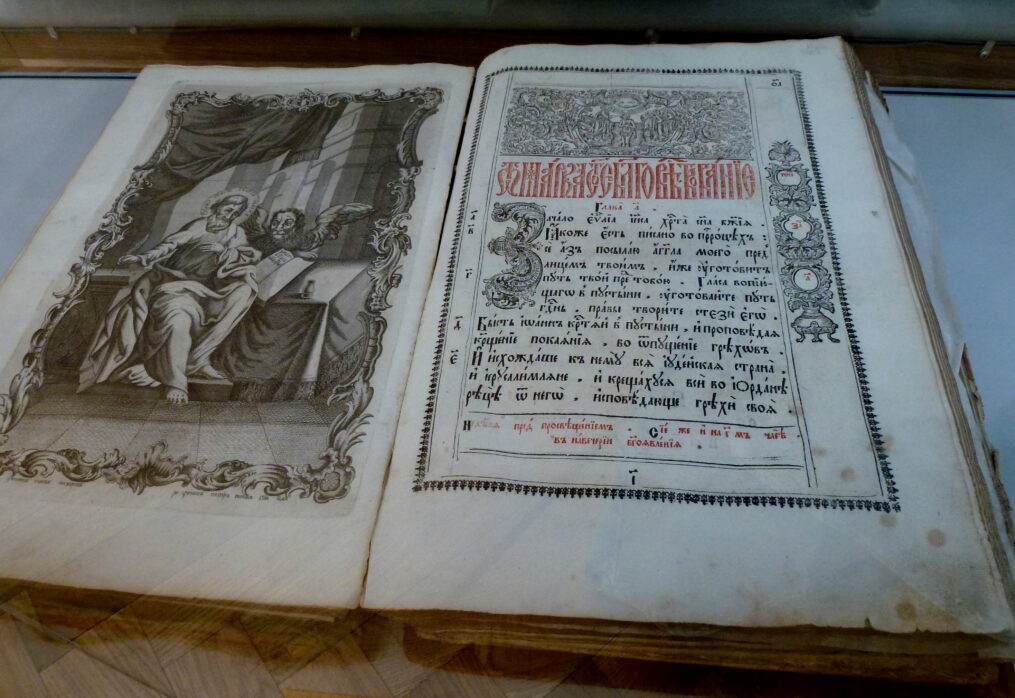 ѿ ма́рка ст҃о́е бл҃говѣствова́нїе
Глава̀ а҃ .
Зача́ло є҆ѵⷢ҇лїа і҆и҃са хрⷭ҇та̀ сн҃а бж҃їѧ .
Ꙗ҆́коже є҆́сть пи́сано во прⷪ҇ро́цѣхъ :
сѐ а҆́зъ посыла́ю а҆́гг҃ла моего̀ пред̾
лице́мъ твои́мъ . и҆́же ᲂу҆гото́витъ
пꙋ́ть тво́й пред̾ тобо́ю . Гла́съ вопїю́
щагѡ в̾ пꙋсты́ни . ᲂу҆гото́вайте пꙋ́ть
гдⷭ҇нь . пра́вы твори́те стезѝ є҆гѡ̀ .
Бы́сть і҆ѡа́ннъ крⷭ҇тѧ́й в̾ пꙋсты́ни . и҆ проповѣ́даѧ
кр҃ще́нїе покаѧ́нїѧ . во ѿпꙋще́нїе грѣхѡ́въ .
И҆ и҆схожда́ше къ немꙋ̀ всѧ̀ і҆ꙋде́йскаѧ страна̀ .
и҆ і҆ерⷭ҇али́млѧне . и҆ креща́хꙋсѧ всѝ во і҆ѻрда́нѣ
рѣцѣ̀ ѿ негѡ̀ . и҆сповѣ́дающе грѣхѝ своѧ̑ .
Недѣ́лѧ пред̾ просвѣще́нїемъ . Сїе́ же и҆ на г҃мъ часѣ̀ .
въ наве́черїи бг҃оѧвле́нїѧ .